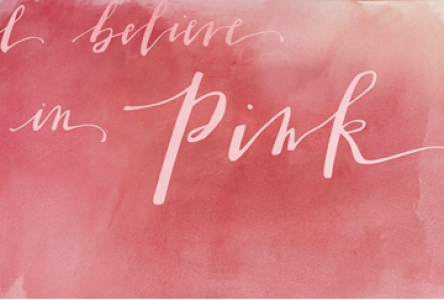 I believe
in Pink